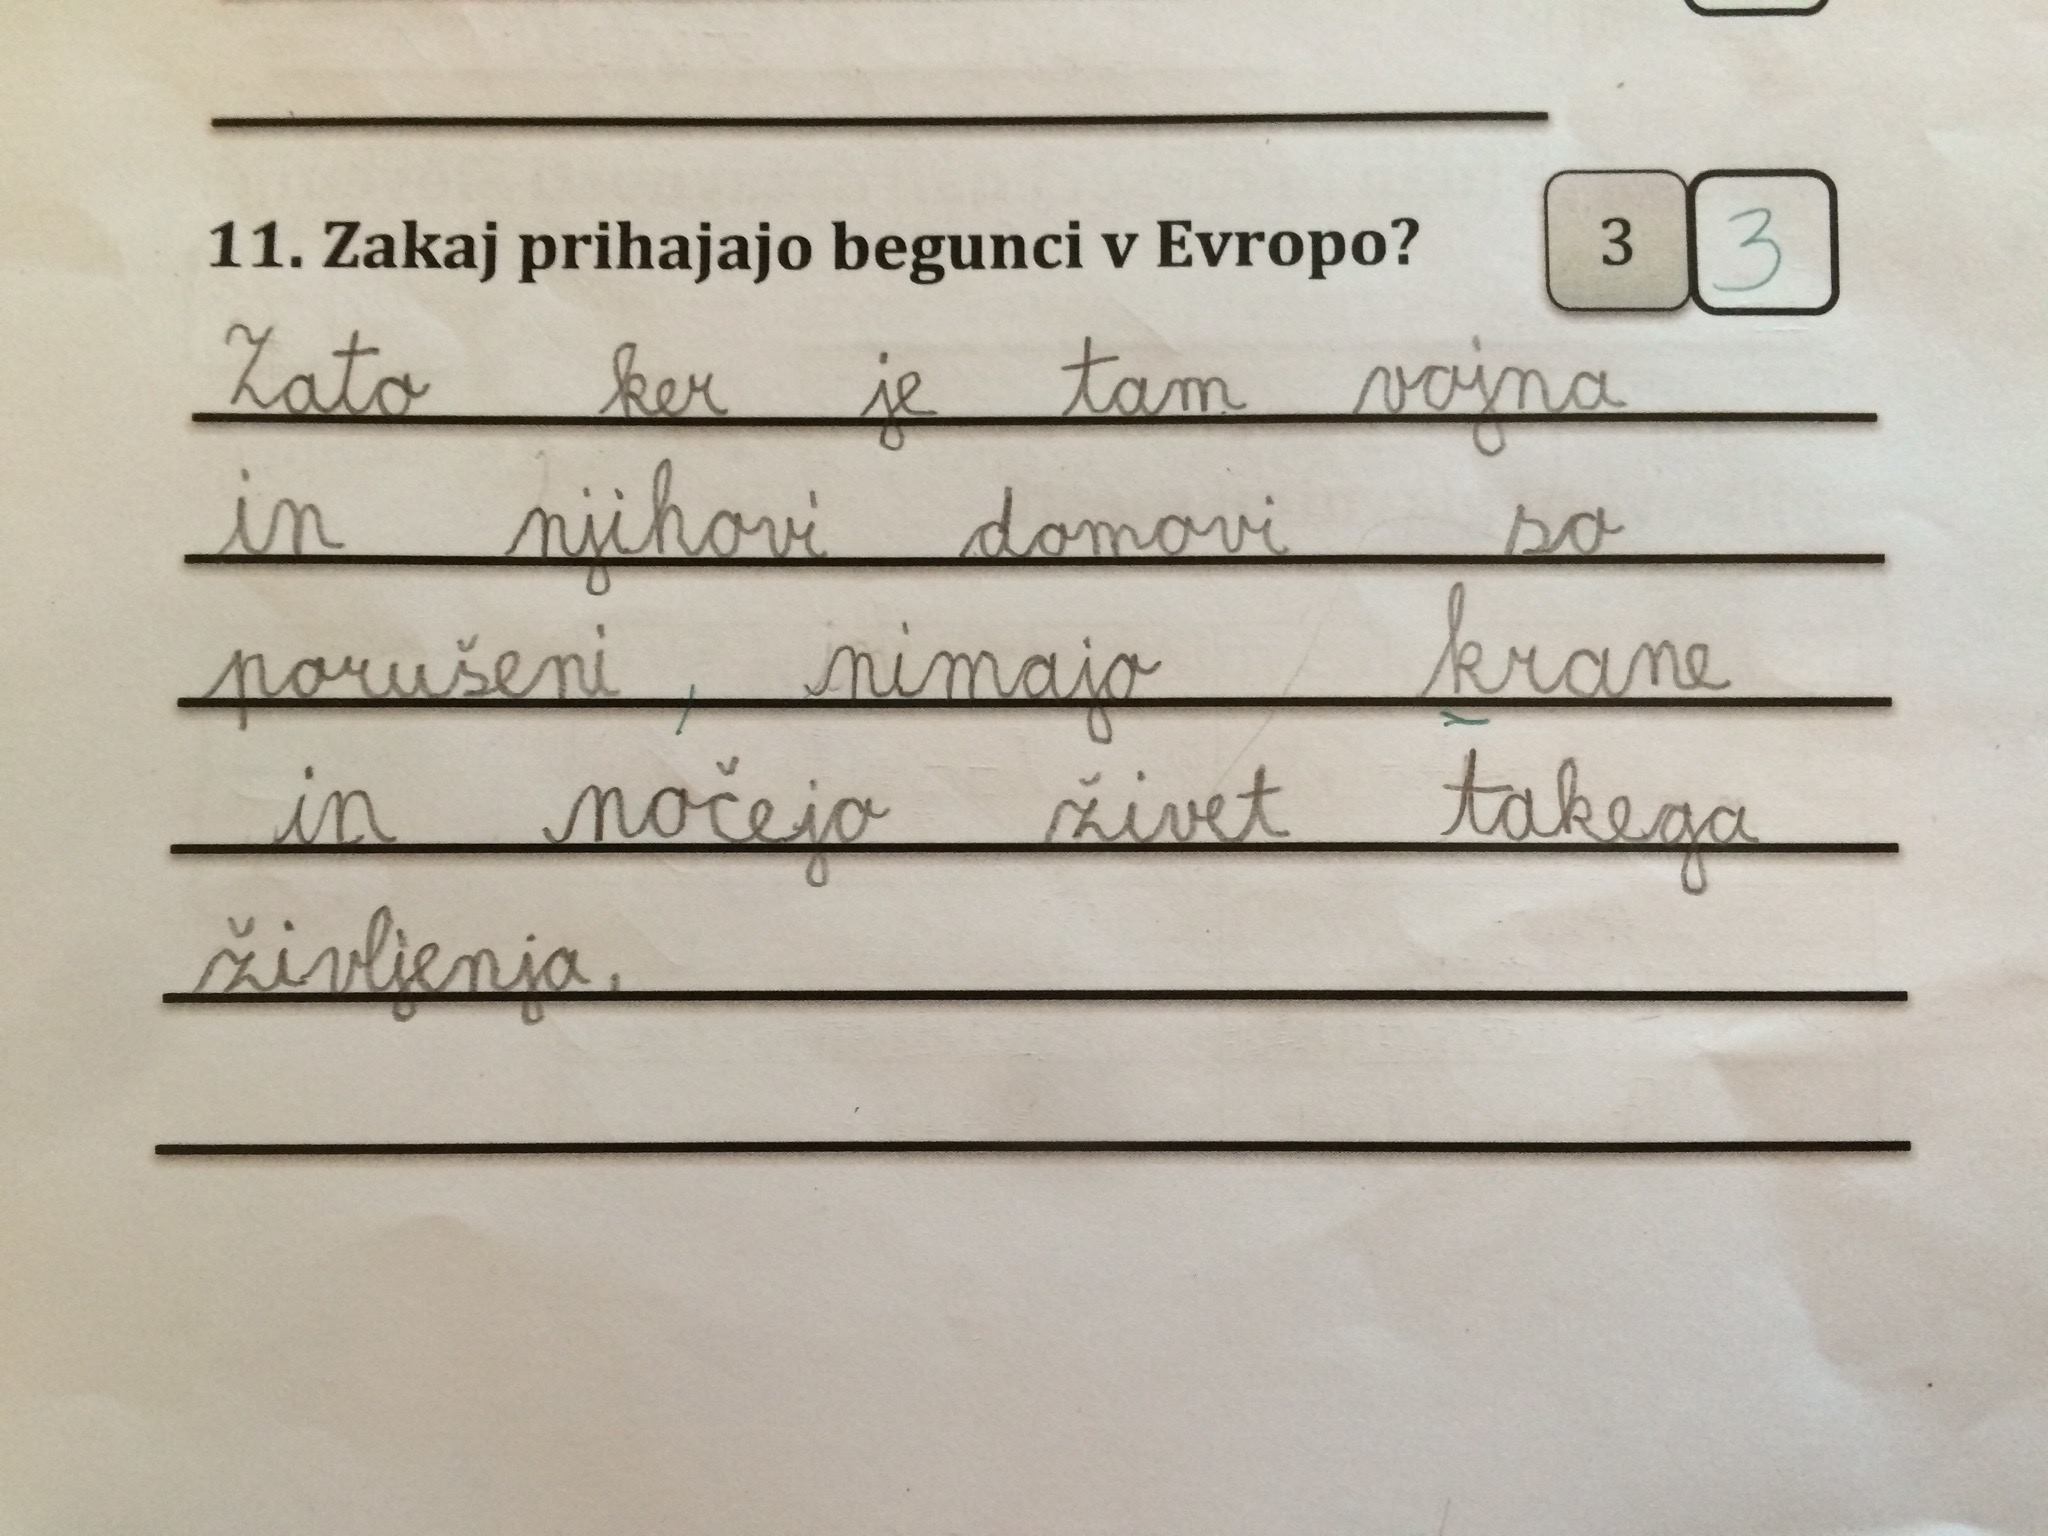 11. Zakaj prihajajo begunci v Evropo?
3 3
Zato ker je tam vojna
in njihovi domovi so
porušeni, nimajo krane
in nočejo živet takega
življenja.